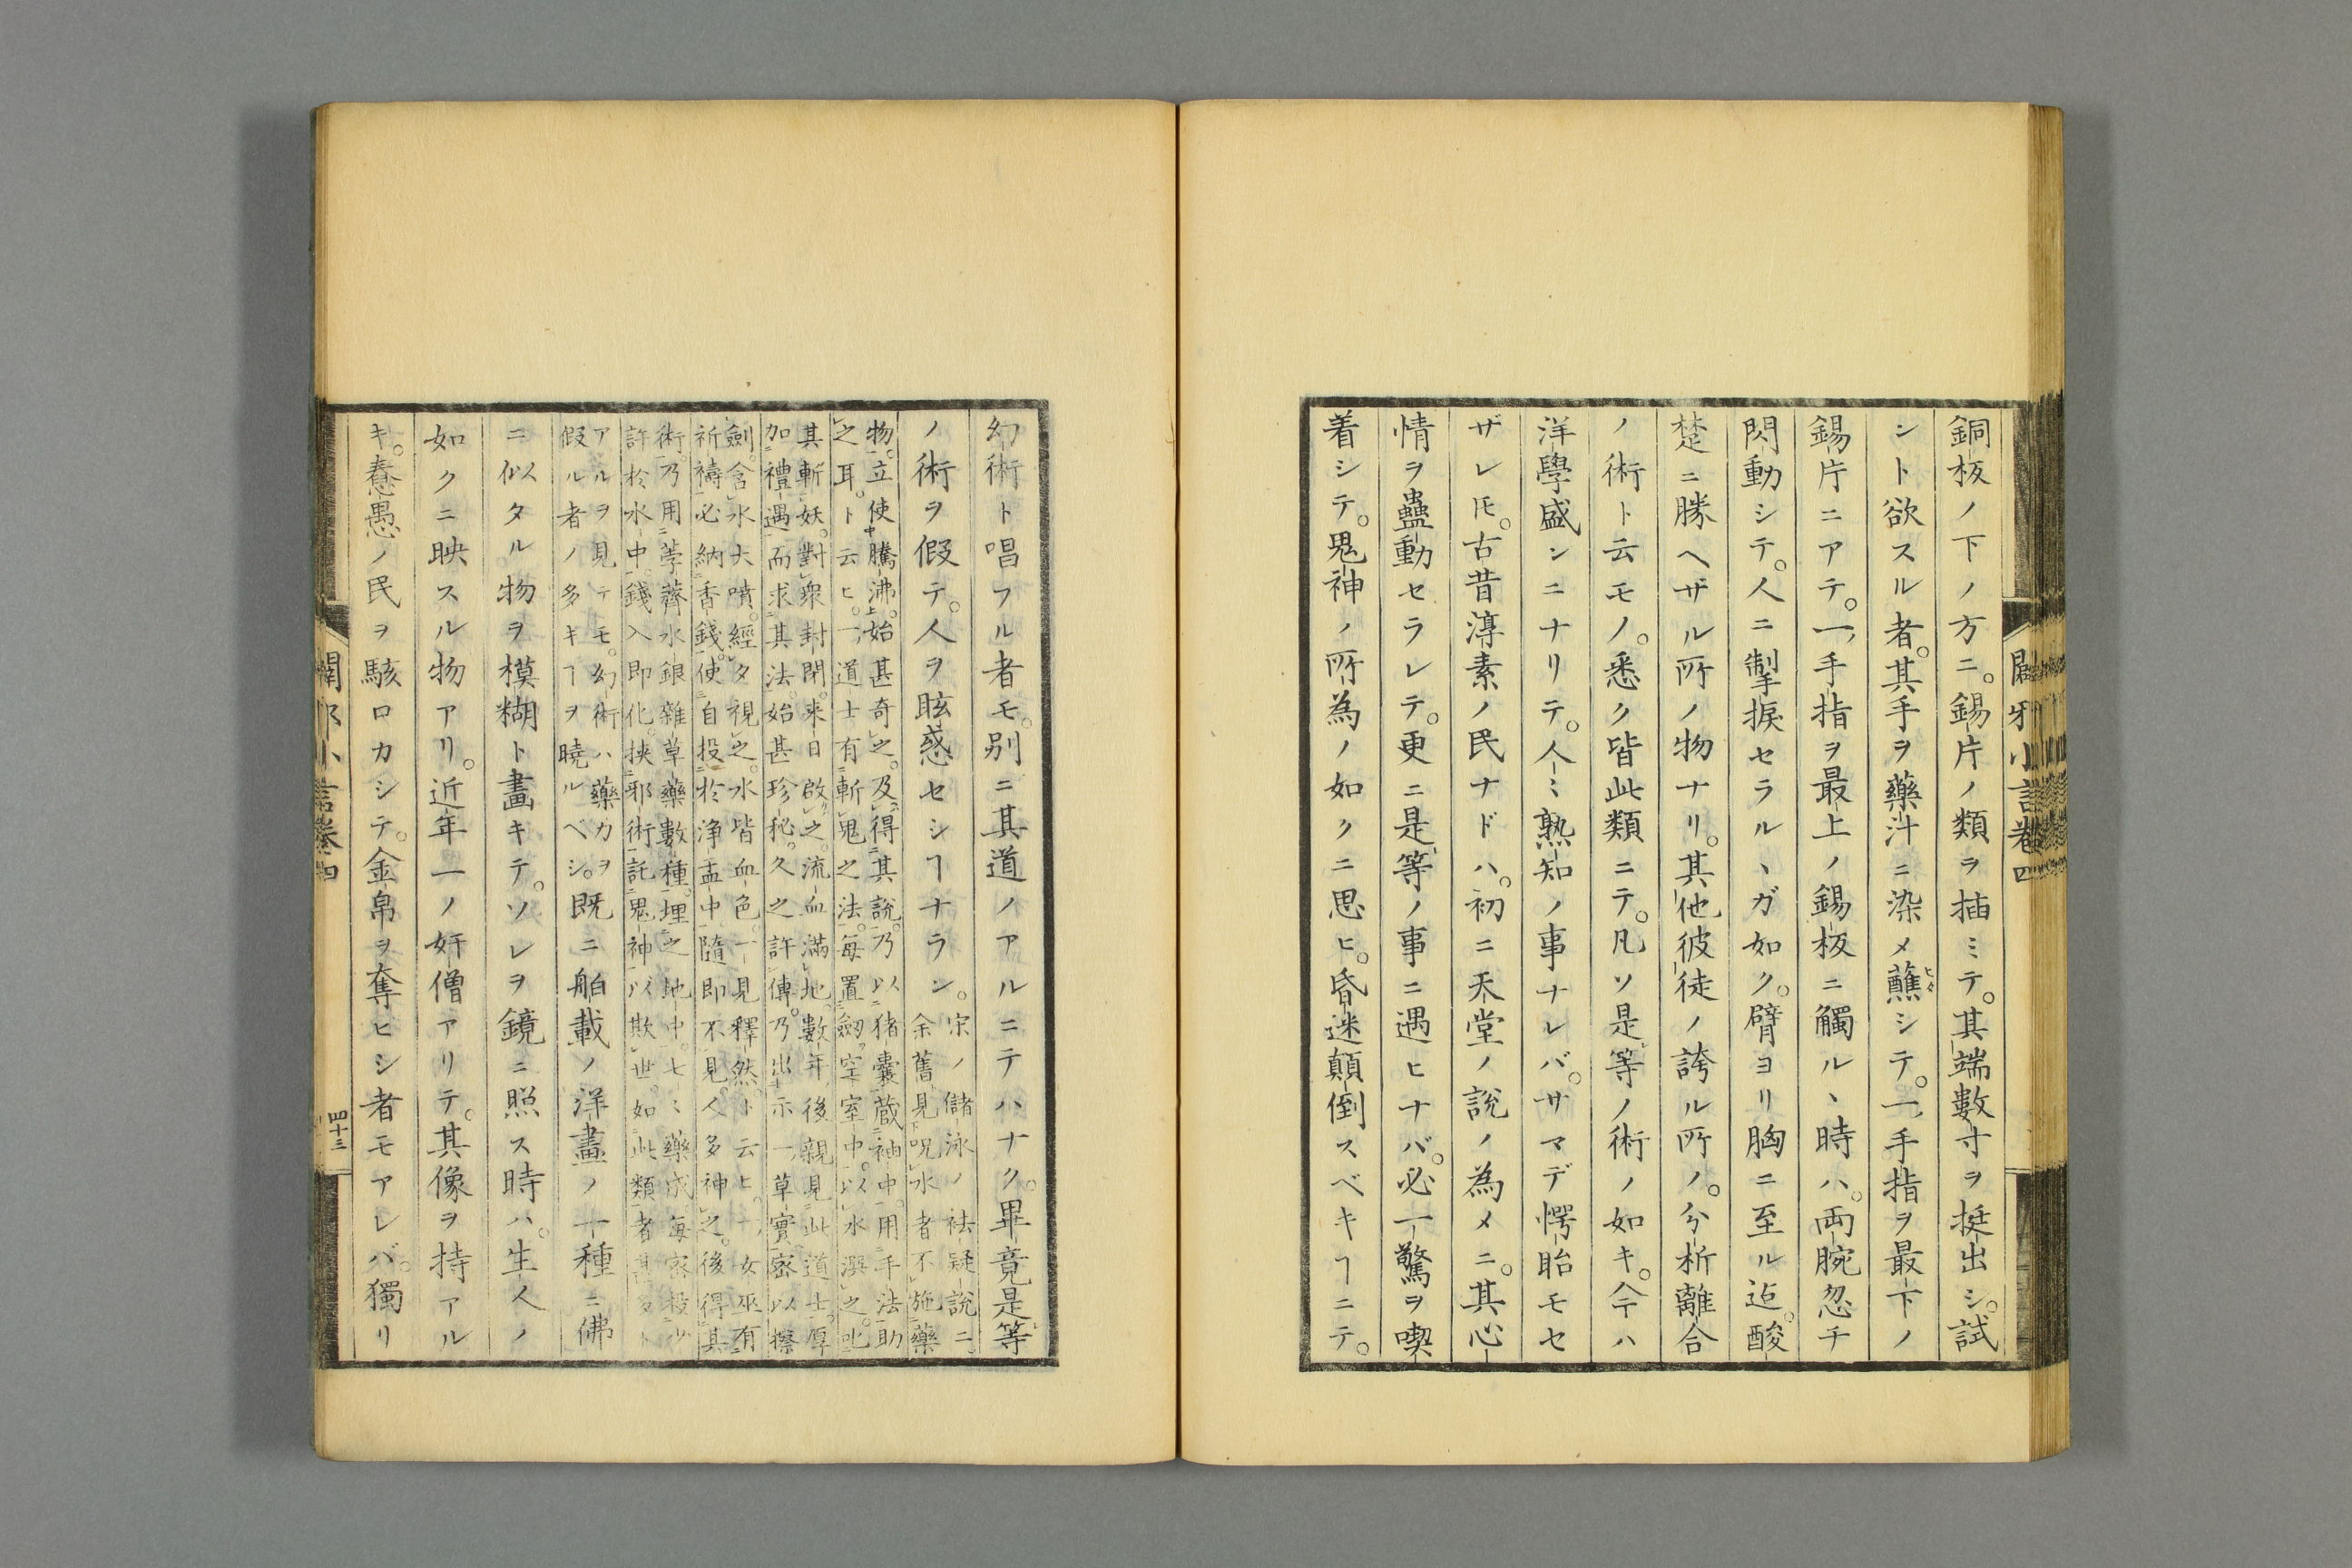 銅板ノ下ノ方ニ。錫片ノ類ヲ插ミテ。其端數寸ヲ挺出シ。試
シト欲スル者。其手ヲ藥汁ニ染メ蘸シテ。一手指ヲ最下ノ
錫片ニアテ。一手指ヲ最上ノ錫板ニ觸ルヽ時ハ。両腕忽チ
閃動シテ。人ニ掣捩セラルヽガ如ク。臂ヨリ胸ニ至ル迠。酸
楚ニ勝ヘザル所ノ物ナリ。其他彼徒ノ誇ル所ノ。分析離合
ノ術ト云モノ。悉ク皆此類ニテ。凡ソ是等ノ術ノ如キ。今ハ
洋學盛ンニナリテ。人ミ熟知ノ事ナレバ。サマデ愕眙モセ
ザレ𪜈。古昔淳素ノ民ナドハ。初ニ天堂ノ說ノ為メニ。其心
情ヲ蠱動セラレテ。更ニ是等ノ事ニ遇ヒナバ。必一驚ヲ喫
着シテ。鬼神ノ所為ノ如クニ思ヒ。昏迷顛倒スベキヿニテ。
闢邪小言卷四
幻術ト唱フル者モ。別ニ其道ノアルニテハナク。畢竟是等
ノ術ヲ假テ。人ヲ眩惑セシヿナラン。宋ノ儲泳ノ袪疑說ニ
余舊見呪水者不施藥
物。立使騰沸。始甚奇之。及得其說。乃以猪囊蔵袖中。用手法助
之耳。ト云ヒ。一道士有斬鬼之法。每置劔空室中。以水潠之。叱
其斬妖。對衆封閉。来日啟之。流血滿地。數年後親見此道士。厚
加禮遇而求其法。始甚珍秘。久之許傳。乃出示一草實。密以擦
劍。含水大噴。經夕視之。水皆血色。一見釋然。ト云ヒ。一女巫有
祈禱必納香錢。使自投於浄盂中隨即不見。人多神之。後得其
術。乃用荸薺水銀雜草藥數種。埋之地中。七ミ藥成。每密投少
許於水中。錢入即化。挾邪術託鬼神以欺世。如此類者甚多ト
アルヲ見テモ。幻術ハ藥力ヲ
假ル者ノ多キヿヲ曉ルベシ。既ニ舶載ノ洋畫ノ一種ニ佛
ニ似タル物ヲ模糊ト畫キテ。ソレヲ鏡ニ照ス時ハ。生人ノ
如クニ映スル物アリ。近年一ノ奸僧アリテ。其像ヲ持アル
キ。惷愚ノ民ヲ駭ロカシテ。金帛ヲ奪ヒシ者モアレバ。獨リ
闢邪小言卷四
四十三